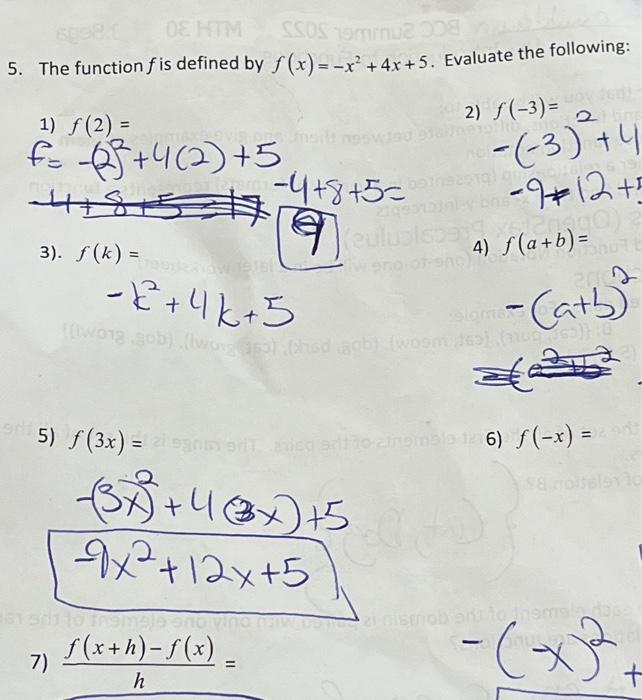 5. The function f is defined by f(x) = -x² + 4x + 5. Evaluate the following:
1) f(2) =
f = -(2)² + 4(2) + 5
-4 + 8 + 5 =
9
2) f(-3) =
-(-3)² + 4
-9 + 12 + 5
3). f(k) =
-k² + 4k + 5
4) f(a+b) =
-(a+b)²
5) f(3x) =
-(3x)² + 4(3x) + 5
-9x² + 12x + 5
6) f(-x) =
-(-x)² +
7) f(x+h) - f(x) / h =